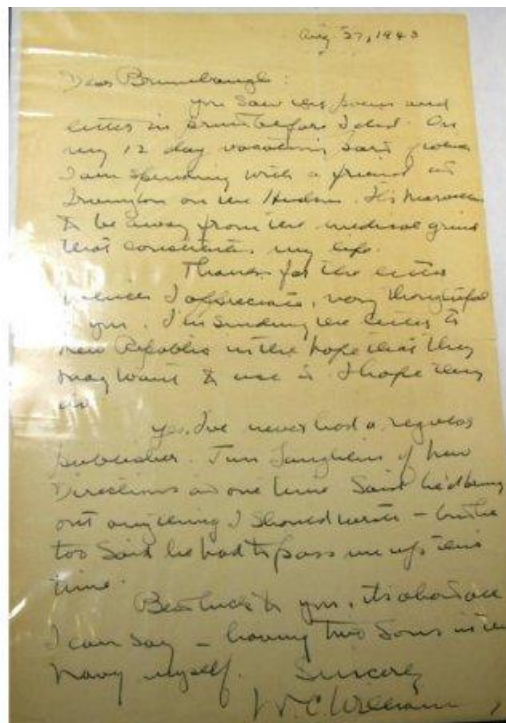 Aug 27, 1943
Dear Brumbaugh:
You saw the poem and
letter in print before I did. On
my 12 day vacation
I am spending with a friend at
Irvington on the Hudson. It's
to be away from the medical grind
that constitutes my life.
Thanks for the letter
which I appreciate, very thoughtful
of you. I'm sending the letter to
New Republic in the hope that they
may want to use it. I hope they
do.
Yes, I've never had a regular
publisher. Jim Laughlin of New
Directions at one time said he'd bring
out anything I should write – but he
too said he had to pass me up this
time.
Best luck to you, it's about all
I can say – having two sons in the
Navy myself. Sincerely
W.C. Williams